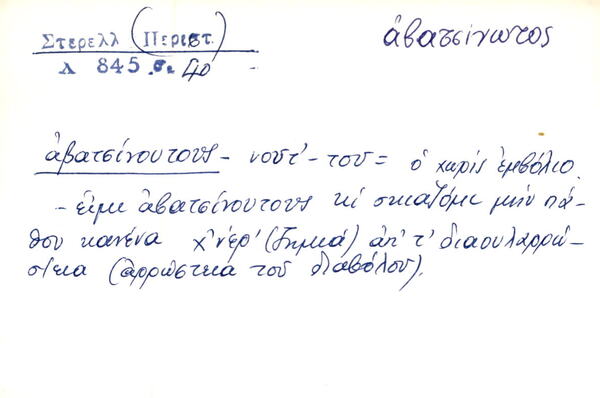 Στερελλ (Περιστ.)
ἀβατσίνωτος
Λ 845 σ. 40
ἀβατσίνουτους - νουτ' - του = ὁ χωρίς ἐμβόλιο.
- εἶμι ἀβατσίνουτους κί σκιαζόμι μήν πά-
θου κανένα χ'νέρ' (ζημιά) ἀπ' τ' διαουλαρρώ-
στεια (ἀρρώστεια τοῦ διαβόλου).